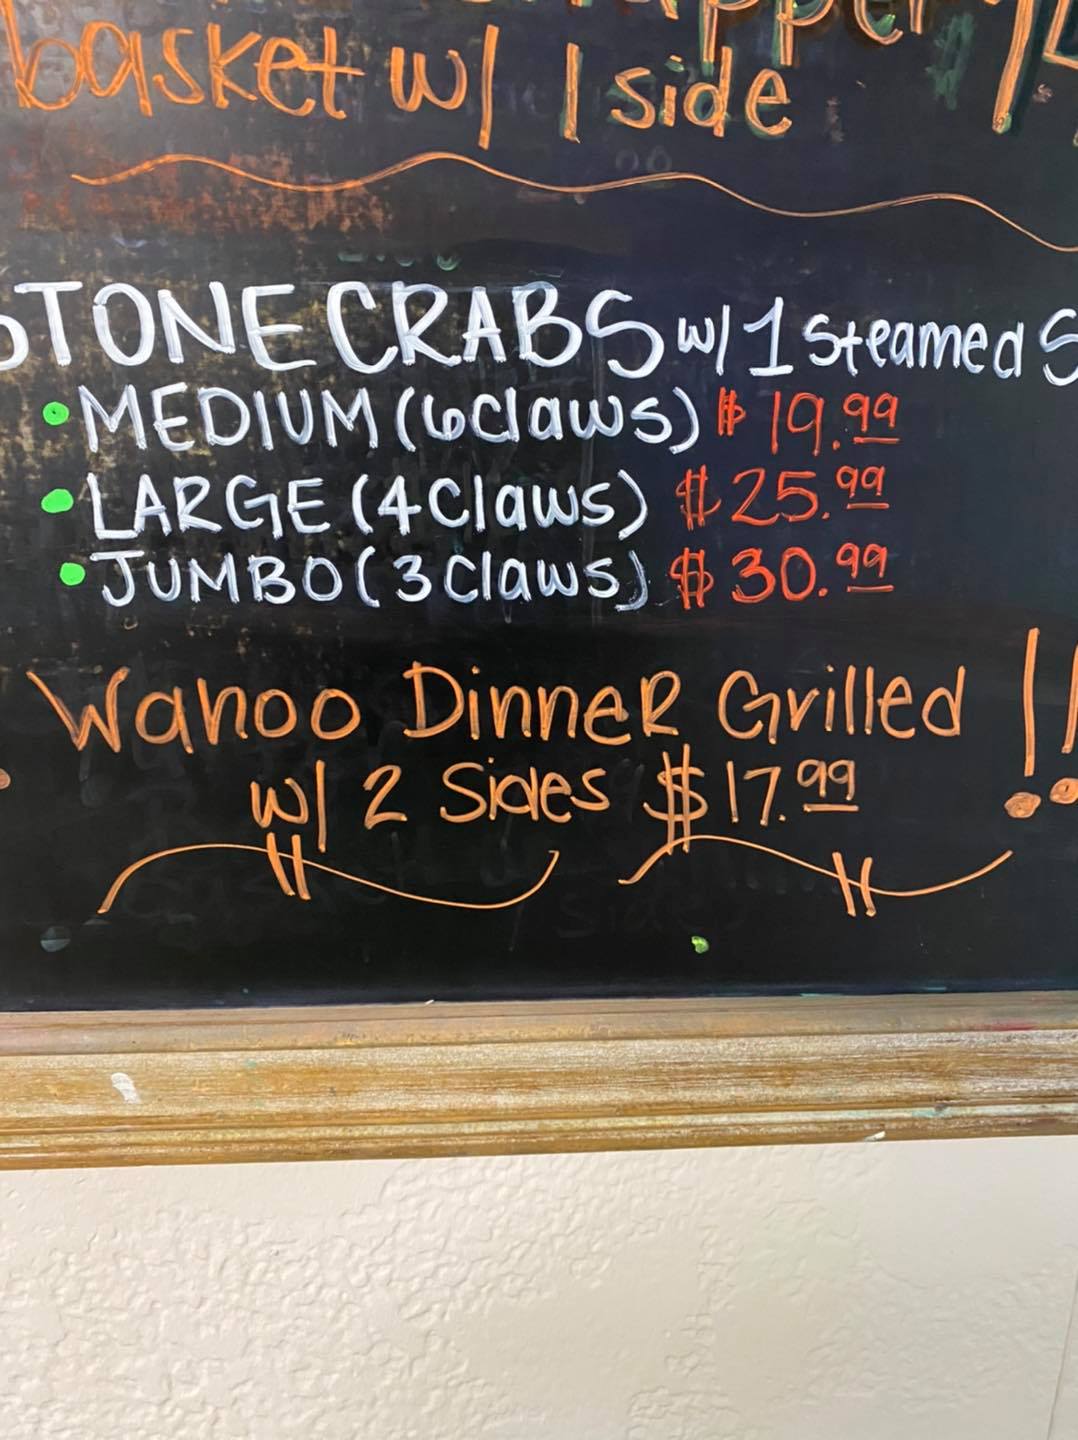 basket w/ 1 side
STONE CRABS w/ 1 Steamed S
• MEDIUM (6 Claws) $19.99
• LARGE (4 Claws) $25.99
• JUMBO (3 Claws) $30.99
Wahoo Dinner Grilled !!
w/ 2 Sides $17.99